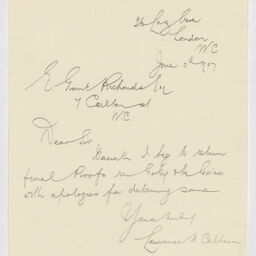 London
W.C
June 5th 1907
E Grant Richards Esq
7 Carlton St
W.C
Dear Sir
Herewith I beg to return
final Proofs re
with apologies for delaying same
Yours truly
Lawrence H